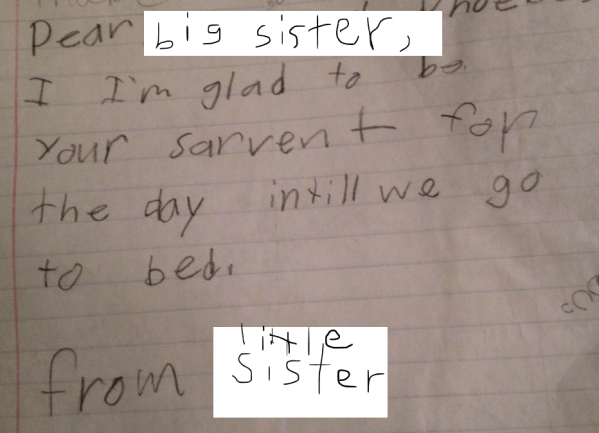 Dear big sister,
I I'm glad to be
your sarvent for
the day intill we go
to bed.
from little
sister